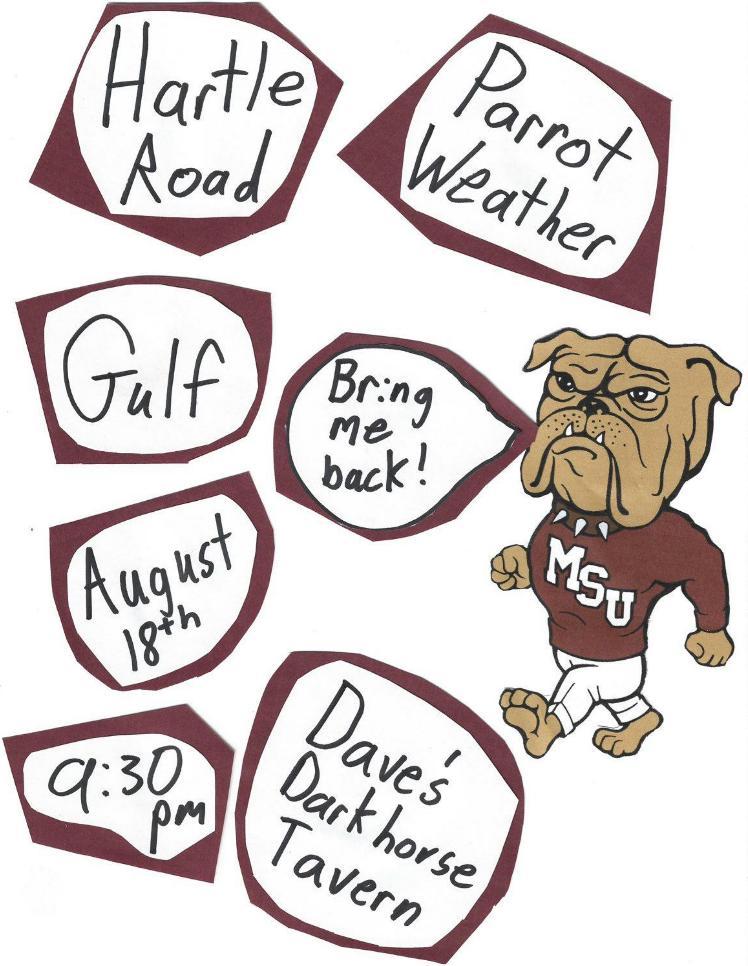 Hartle
Road
Parrot
Weather
Gulf
Bring
me
back!
MSU
August
18th
9:30
pm
Dave's
Darkhorse
Tavern